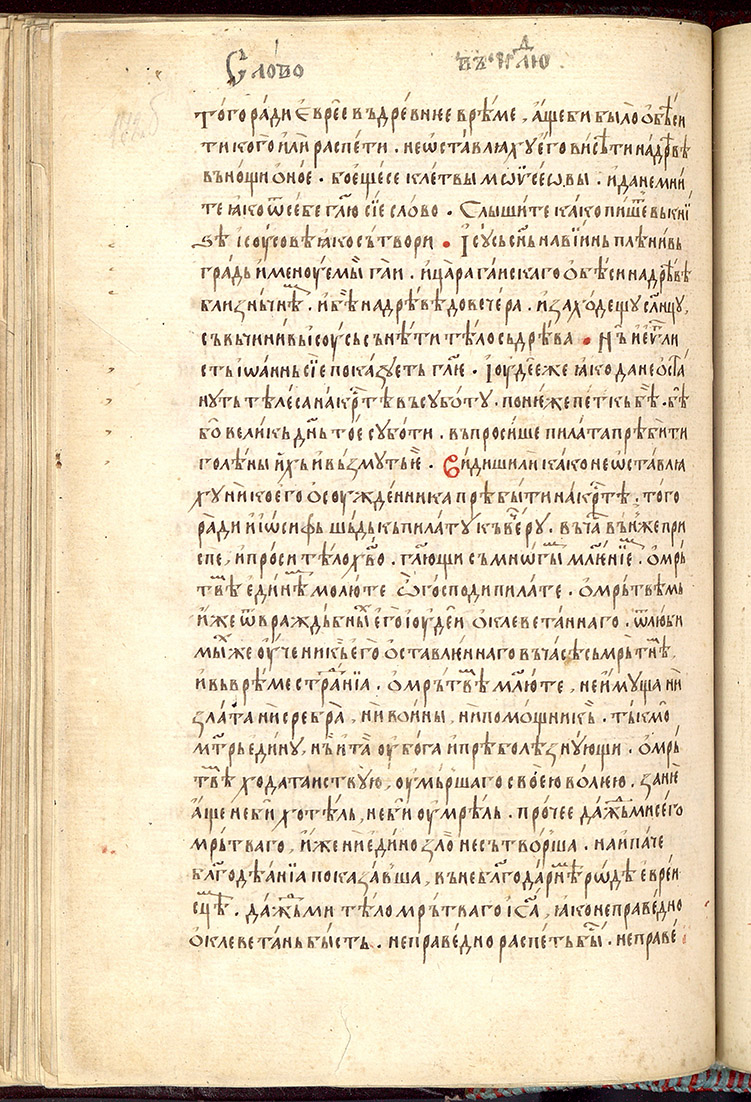 Сло́во въ нⷣлю
то́го ра́ди є҆врє́є въ дрѣ́внѥє врѣ́ме , а҆́ще би было ѻ҆бѣ́си
ти кого и҆лѝ распе́ти . не ѡ҆ста́влꙗхꙋ є҆го̀ висѣ́ти на дрѣ́вѣ
въ но́щи ѻ҆́ноє . боє́щесе клє́твы мѡѷсе́ѡвы . и да не мни́
те ꙗ҆ко ѿ себе гл҃ю сїѐ сло́во . Слы́шите ка́ко пи́шетⸯ вь кни́
ѕѣ і҆сꙋ́совѣ ꙗ҆ко сътвори . І҆сꙋ́сь сн҃ь на́виинь плѣни́вь
гра́дь и҆менꙋ́емы гаи . и҆ ца́ра га́искаго ѻ҆бѣ́си на дрѣ́вѣ
близнь́чнѣ . и҆ бѣ̀ на дрѣ́вѣ до ве́чера . и҆ захо́дещꙋ сл҃нцꙋ ,
съвъчини́вь і҆сꙋ́сь сънѣ́ти тѣ́ло сь дрѣ́ва . Нъ̀ и є҆ѵⷢ҇ли
сть і҆ѡа́ннь сїѐ пока́зꙋеть гл҃ѥ . І҆ꙋдє́є же ꙗ҆ко да не ѡ҆ста́
нꙋть тѣ́леса на крⷭ҇тѣ въ сꙋбо́тꙋ . поне́же пе́ткь бѣ̀ . бѣ́
бо̀ вели́кь дн҃ь то́є сꙋбо́ти . въпроси́ше пила́та прѣби́ти
голѣ́ны и҆́хь и въ́змꙋть ѥ҆ . Ви́диши ли ка́ко не ѡ҆ста́влꙗ
хꙋ нико́его ѻ҆сꙋжде́нника прѣбы́ти на крⷭ҇тѣ . то́го
ра́ди и і҆ѡ́сифь шь́дь къ пила́тꙋ къ ве́черꙋ . въ ча́сⸯ въ ѥнⸯже при
спе , и҆ про́си тѣ́ло хв҃о . гл҃ющи съ мно́гыⷨ мл҃еніеⷨ . ѻ҆ мрь́
твѣⷨ є҆ди́нѣⷨ молю́ те ѽ господи пила́те . ѻ҆ мрь́твѣмь
и҆́же ѿ вражьдь́бныⷯ є҆го̀ і҆ꙋде́и ѻ҆клевета́ннаго . ѿ любы́
мыⷯ же ѹ҆чени́кь є҆го̀ ѻ҆ставлѥ́ннаго въ ча́сѣ съмрь́тнѣⷨ ,
и҆ вь врѣ́ме страⷣнїа . ѻ҆ мрь́твѣⷨ мл҃ю те , не и҆мꙋ́ща ни
зла́та ни сребра̀ , ни во́ины , ни помо́щникⸯ . ты́кмо̀
мт҃рь є҆ди́нꙋ , нъ̀ и та̀ ѹ҆бо́га и прѣболѣ́знꙋющи . ѻ҆ мрь́
твѣⷨ хода́таиствꙋю , ѹ҆мь́ршаго своє́ю во́лѥю . за́нѥ
а҆́ще не бѝ хотѣ́ль , не бѝ ѹ҆мрѣ́ль . про́чее да́жⷣь ми се́го
мрь́тваго , и҆́же ни єди́но ѕло̀ не сътво́рша . наи́паче
бл҃годѣа́нїа показа́вша , въ небл҃года́рнѣⷨ рѡ́дѣ є҆вре́и
сцѣⷨ . да́жⷣьми тѣ́ло мрь́тваго і҆с҃а , ꙗ҆ко непра́ведно
ѻ҆клевета́нь бы́сть . непра́ведно распе́ть бы́ⷭ҇ . непра́ве́